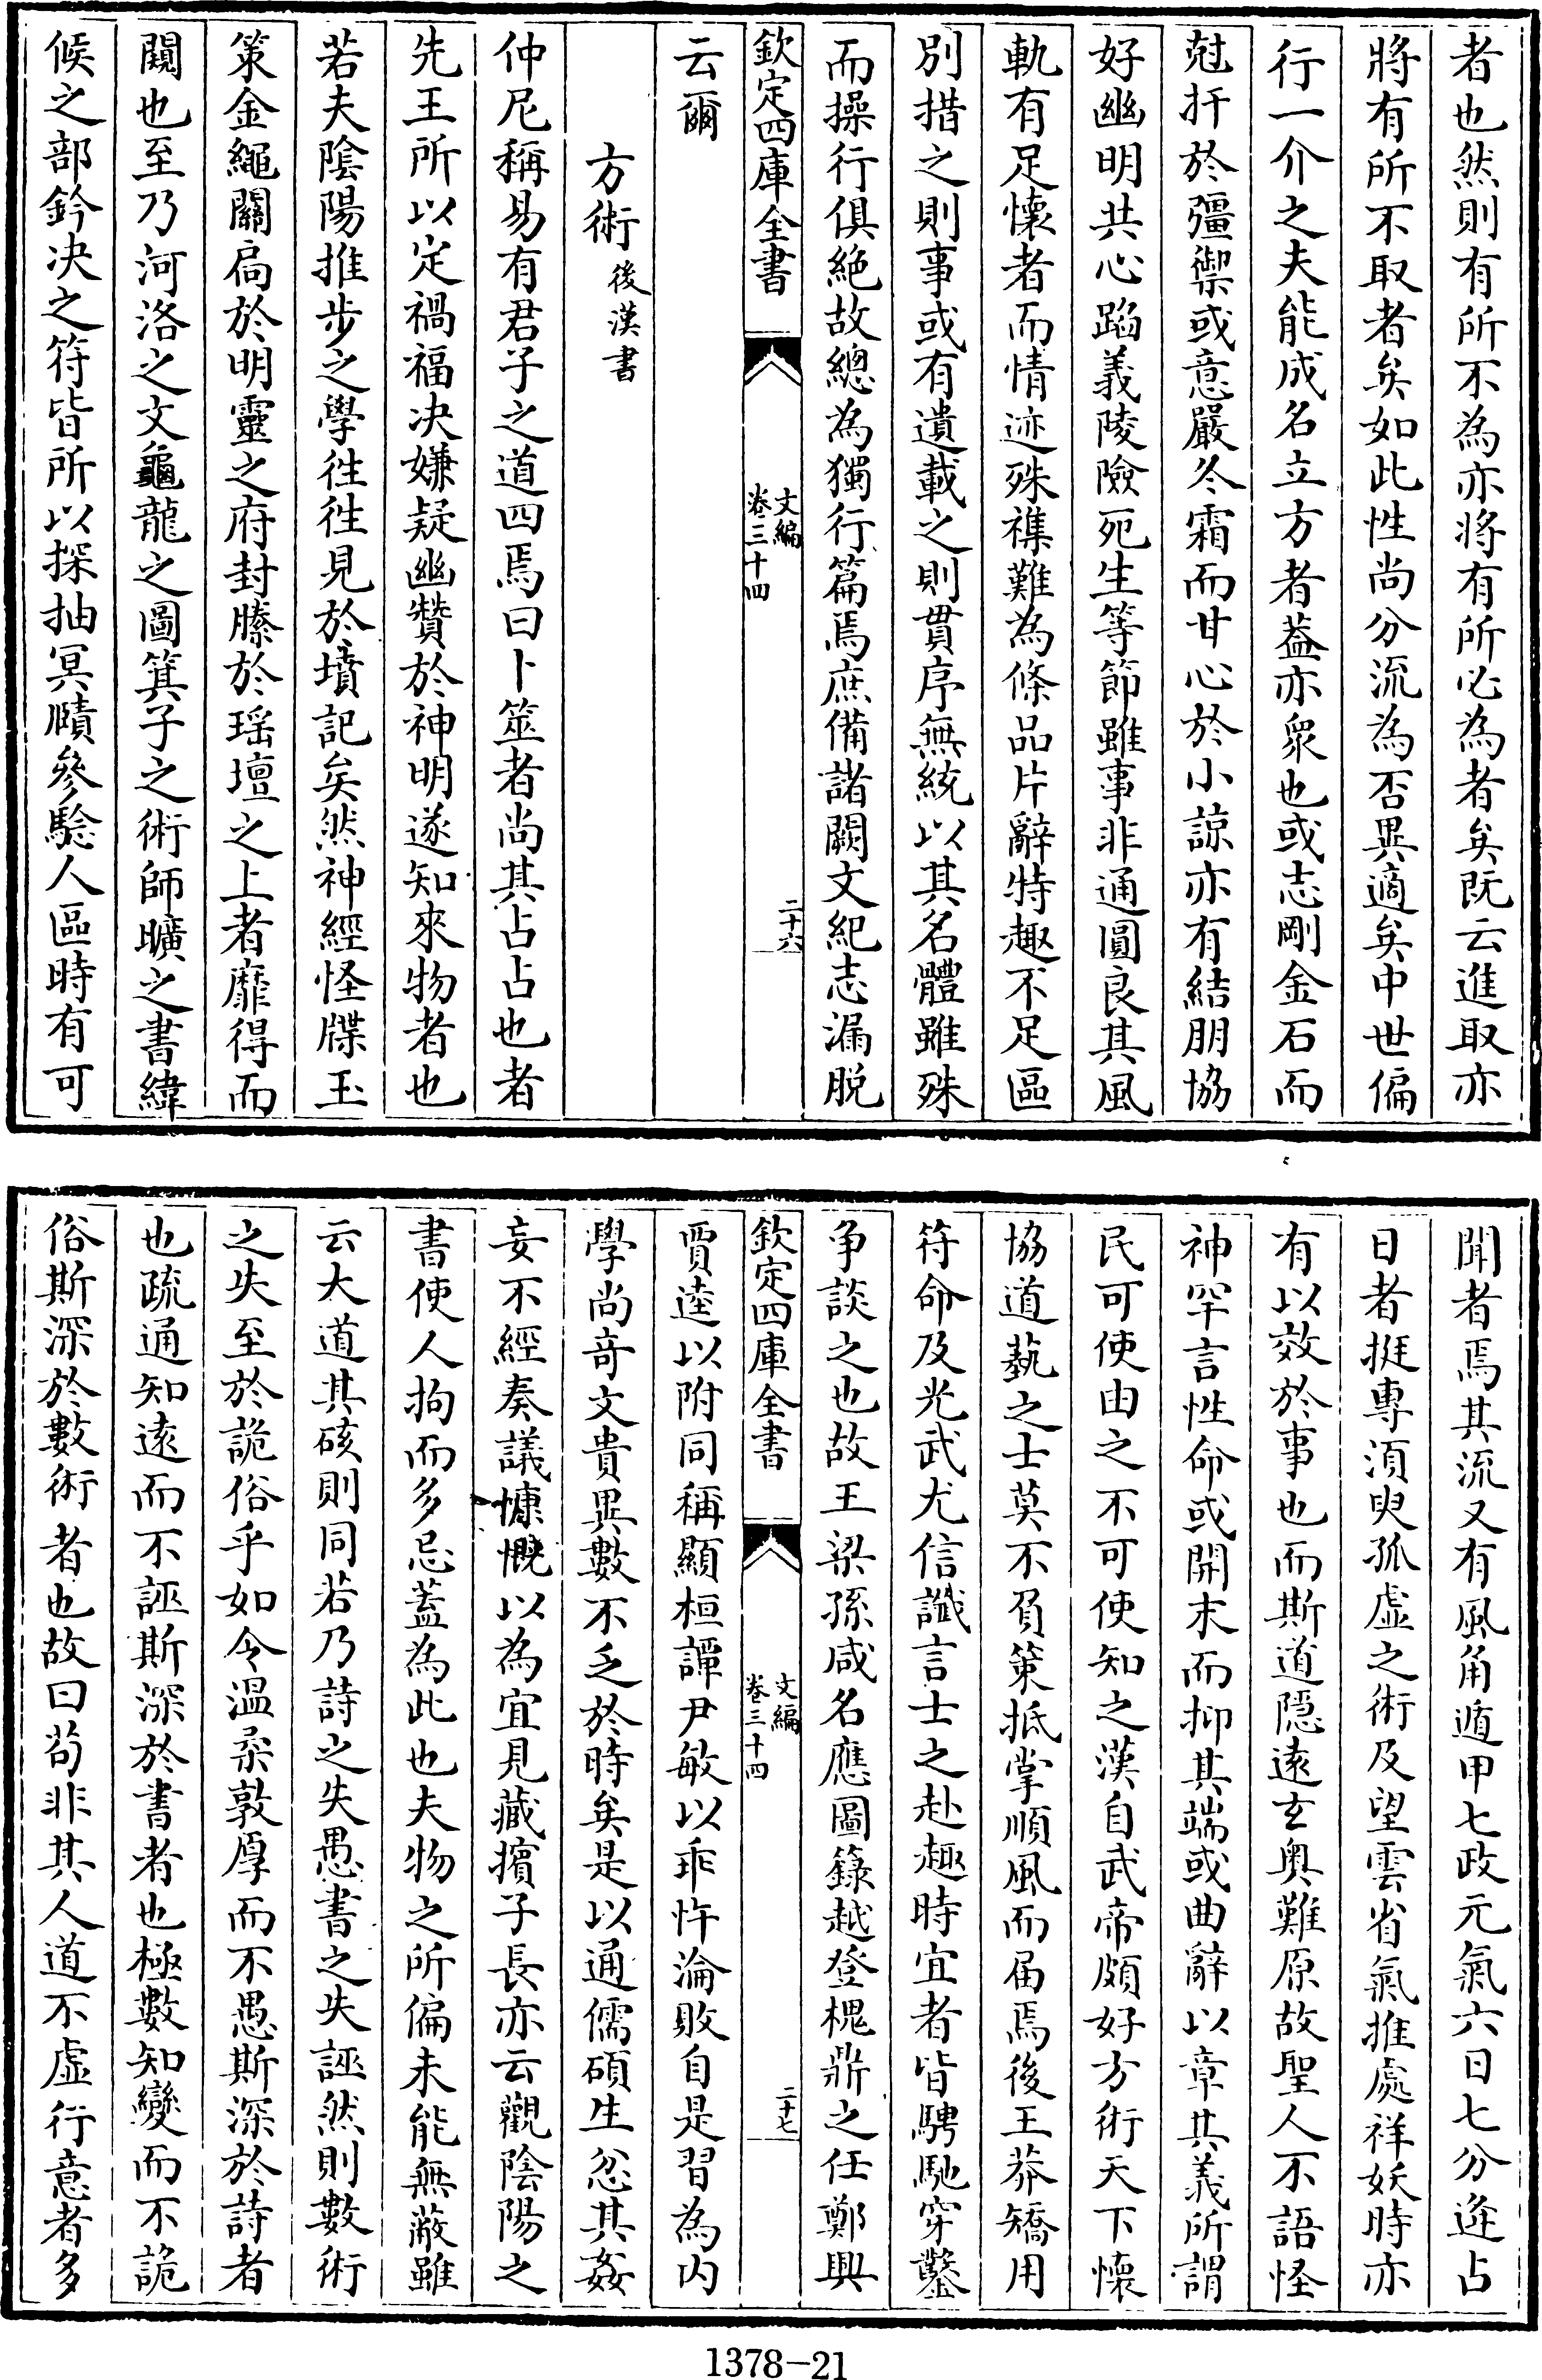 者也然則有所不為亦將有所必為者矣既云進取亦
將有所不取者矣如此性尚分流為否異適矣中世偏
行一介之夫能成名立方者葢亦衆也或志剛金石而
尅扞於彊禦或意嚴冬霜而甘心於小諒亦有結朋協
好幽明共心蹈義陵險死生等節雖事非通圓良其風
軌有足懷者而情迹殊襍難為條品片辭特趣不足區
別措之則事或有遺載之則貫序無統以其名體雖殊
而操行俱絶故總為獨行篇焉庶備諸闕文紀志漏脱
欽定四庫全書
文編
卷三十四
二十六
云爾
方術後漢書
仲尼稱易有君子之道四焉曰卜筮者尚其占占也者
先王所以定禍福决嫌疑幽贊於神明遂知來物者也
若夫陰陽推步之學徃徃見於墳記矣然神經怪牒玉
策金繩關扃於明靈之府封縢於瑶壇之上者靡得而
闚也至乃河洛之文龜龍之圖箕子之術師曠之書緯
候之部鈐决之符皆所以探抽冥賾參驗人區時有可
聞者焉其流又有風角遁甲七政元氣六日七分逄占
日者挺專湏臾孤虚之術及望雲省氣推處祥妖時亦
有以效於事也而斯道隱逺玄奥難原故聖人不語怪
神罕言性命或開末而抑其端或曲辭以章其義所謂
民可使由之不可使知之漢自武帝頗好方術天下懷
協道蓺之士莫不負策抵掌順風而届焉後王莽矯用
符命及光武尤信䜟言士之赴趣時宜者皆騁馳穿鑿
争談之也故王梁孫咸名應圖籙越登槐鼎之任鄭興
欽定四庫全書
文編
卷三十四
二十七
賈逵以附同稱顯桓譚尹敏以乖忤淪敗自是習為内
學尚竒文貴異數不乏於時矣是以通儒碩生忿其姦
妄不經奏議慷慨以為宜見藏擯子長亦云觀陰陽之
書使人拘而多忌蓋為此也夫物之所偏未能無蔽雖
云大道其硋則同若乃詩之失愚書之失誣然則數術
之失至於詭俗乎如令温柔敦厚而不愚斯深於詩者
也疏通知逺而不誣斯深於書者也極數知變而不詭
俗斯深於數術者也故曰苟非其人道不虚行意者多
1378-21